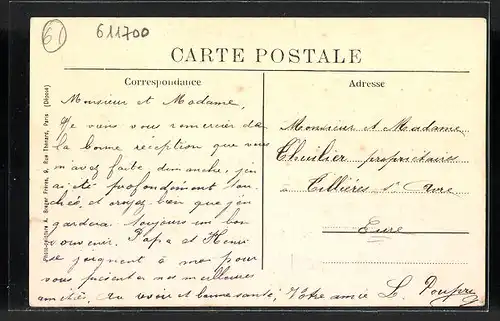 61
611700
CARTE POSTALE
Correspondance
Adresse
Photogravure A. Breger Frères, 9, Rue Thénard, Paris (Déposé)
Monsieur et Madame,
Je viens vous remercier de
la bonne réception que vous
m'avez faite dimanche, j'en
ai été profondément tou-
chée et croyez bien que j'en
gardera toujours un bon
souvenir. Papa et Henri
se joignent à moi pour
vous présenter nos meilleures
amitiés. Au revoir et bonne santé,
Votre amie L.
Monsieur et Madame
propriétaires
à Tillières s/ Avre
Eure